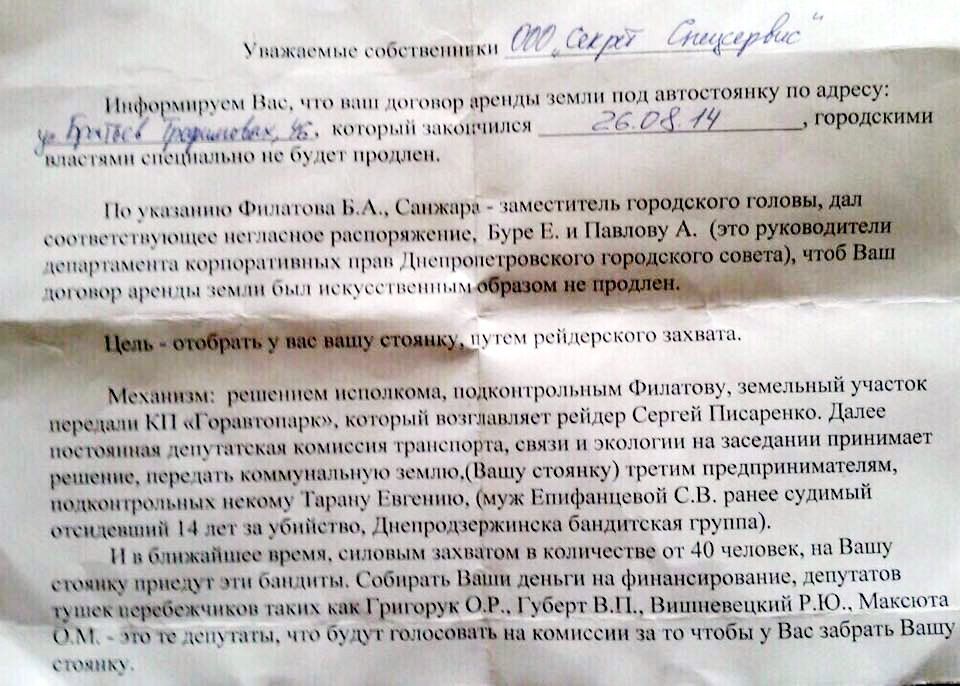 Уважаемые собственники ООО „Секрет Спецсервис"
Информируем Вас, что ваш договор аренды земли под автостоянку по адресу:
ул. Братьев Трофимовых, который закончился 26.08.14, городскими
властями специально не будет продлен.
По указанию Филатова Б.А., Санжара - заместитель городского головы, дал
соответствующее негласное распоряжение, Буре Е. и Павлову А. (это руководители
департамента корпоративных прав Днепропетровского городского совета), чтоб Ваш
договор аренды земли был искусственным образом не продлен.
Цель - отобрать у вас вашу стоянку, путем рейдерского захвата.
Механизм: решением исполкома, подконтрольным Филатову, земельный участок
передали КП «Горавтопарк», который возглавляет рейдер Сергей Писаренко. Далее
постоянная депутатская комиссия транспорта, связи и экологии на заседании принимает
решение, передать коммунальную землю,(Вашу стоянку) третим предпринимателям,
подконтрольных некому Тарану Евгению, (муж Епифанцевой С.В. ранее судимый
отсидевший 14 лет за убийство, Днепродзержинска бандитская группа).
И в ближайшее время, силовым захватом в количестве от 40 человек, на Вашу
стоянку приедут эти бандиты. Собирать Ваши деньги на финансирование, депутатов
тушек перебежчиков таких как Григорук О.Р., Губерт В.П., Вишневецкий Р.Ю., Максюта
О.М. - это те депутаты, что будут голосовать на комиссии за то чтобы у Вас забрать Вашу
стоянку.